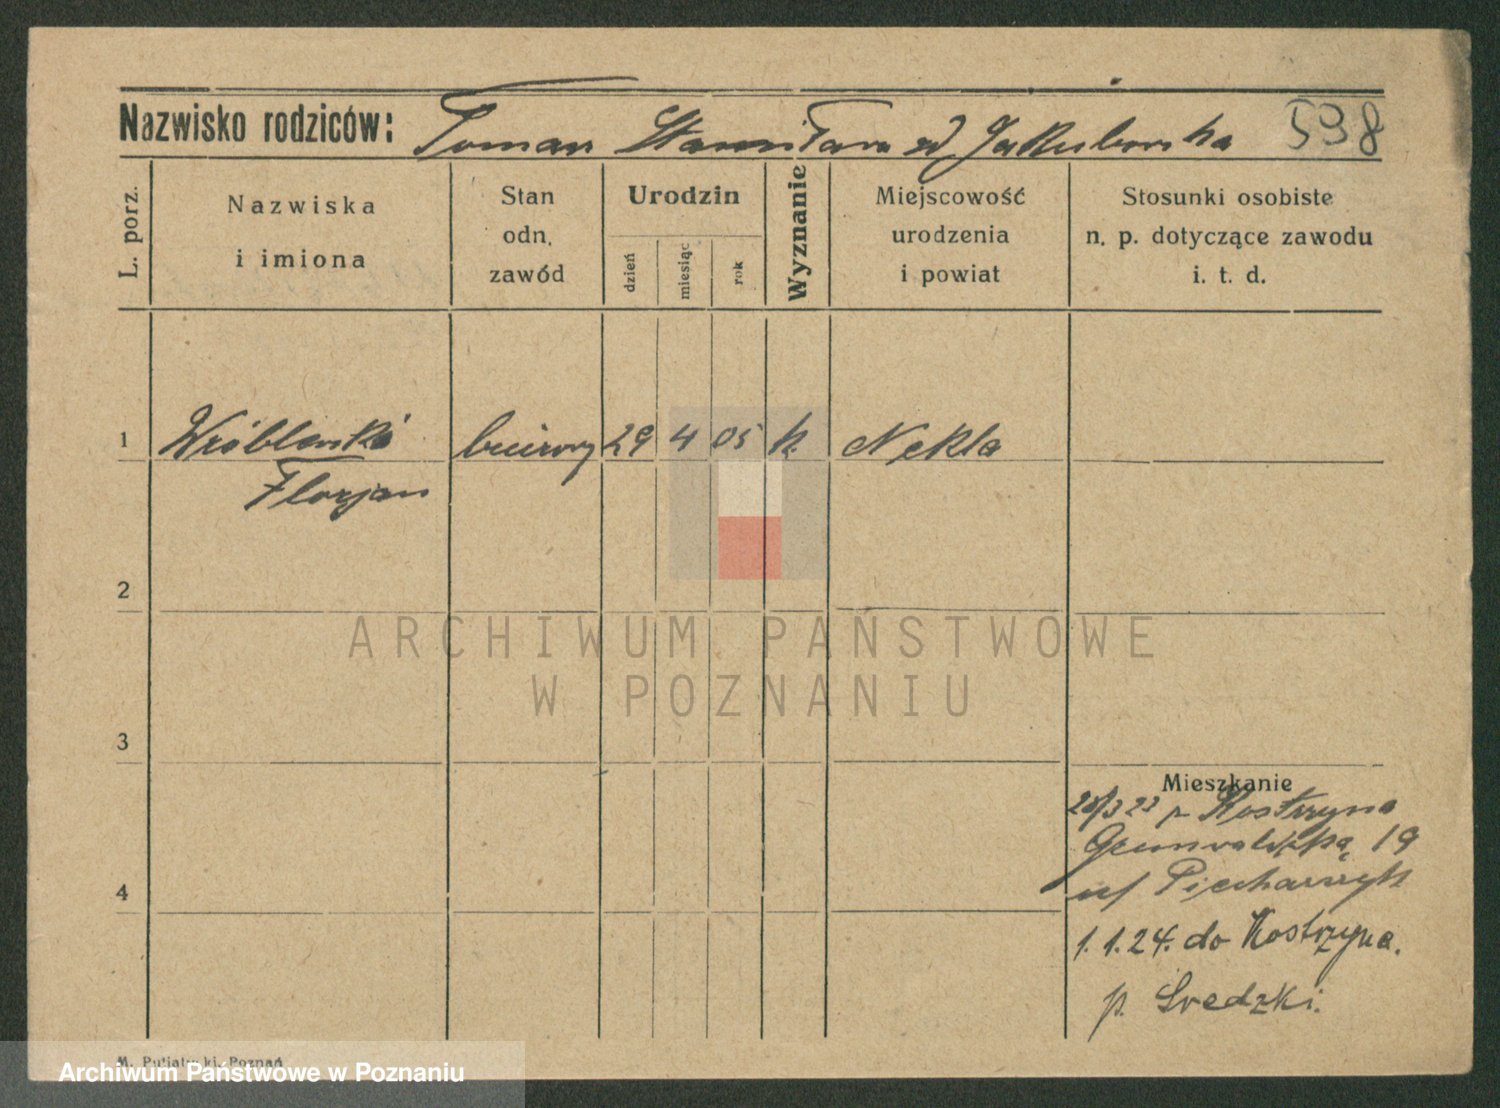 Nazwisko rodziców: Toman Stanisława zd Jakubowska 598
L. porz.
Nazwiska
i imiona
Stan
odn.
zawód
Urodzin
dzień
miesiąc
rok
Wyznanie
Miejscowość
urodzenia
i powiat
Stosunki osobiste
n. p. dotyczące zawodu
i. t. d.
1 Wróblewski biurowy 29 4 05 k. Nekla
Florjan
2
ARCHIWUM PAŃSTWOWE
W POZNANIU
3
Mieszkanie
28/3 23 z Kostrzyna
Grunwaldzka 19
u/ Piecharzyk
4
1.1.24. do Kostrzyna.
p. Średzki.
M. Putiatycki, Poznań
Archiwum Państwowe w Poznaniu